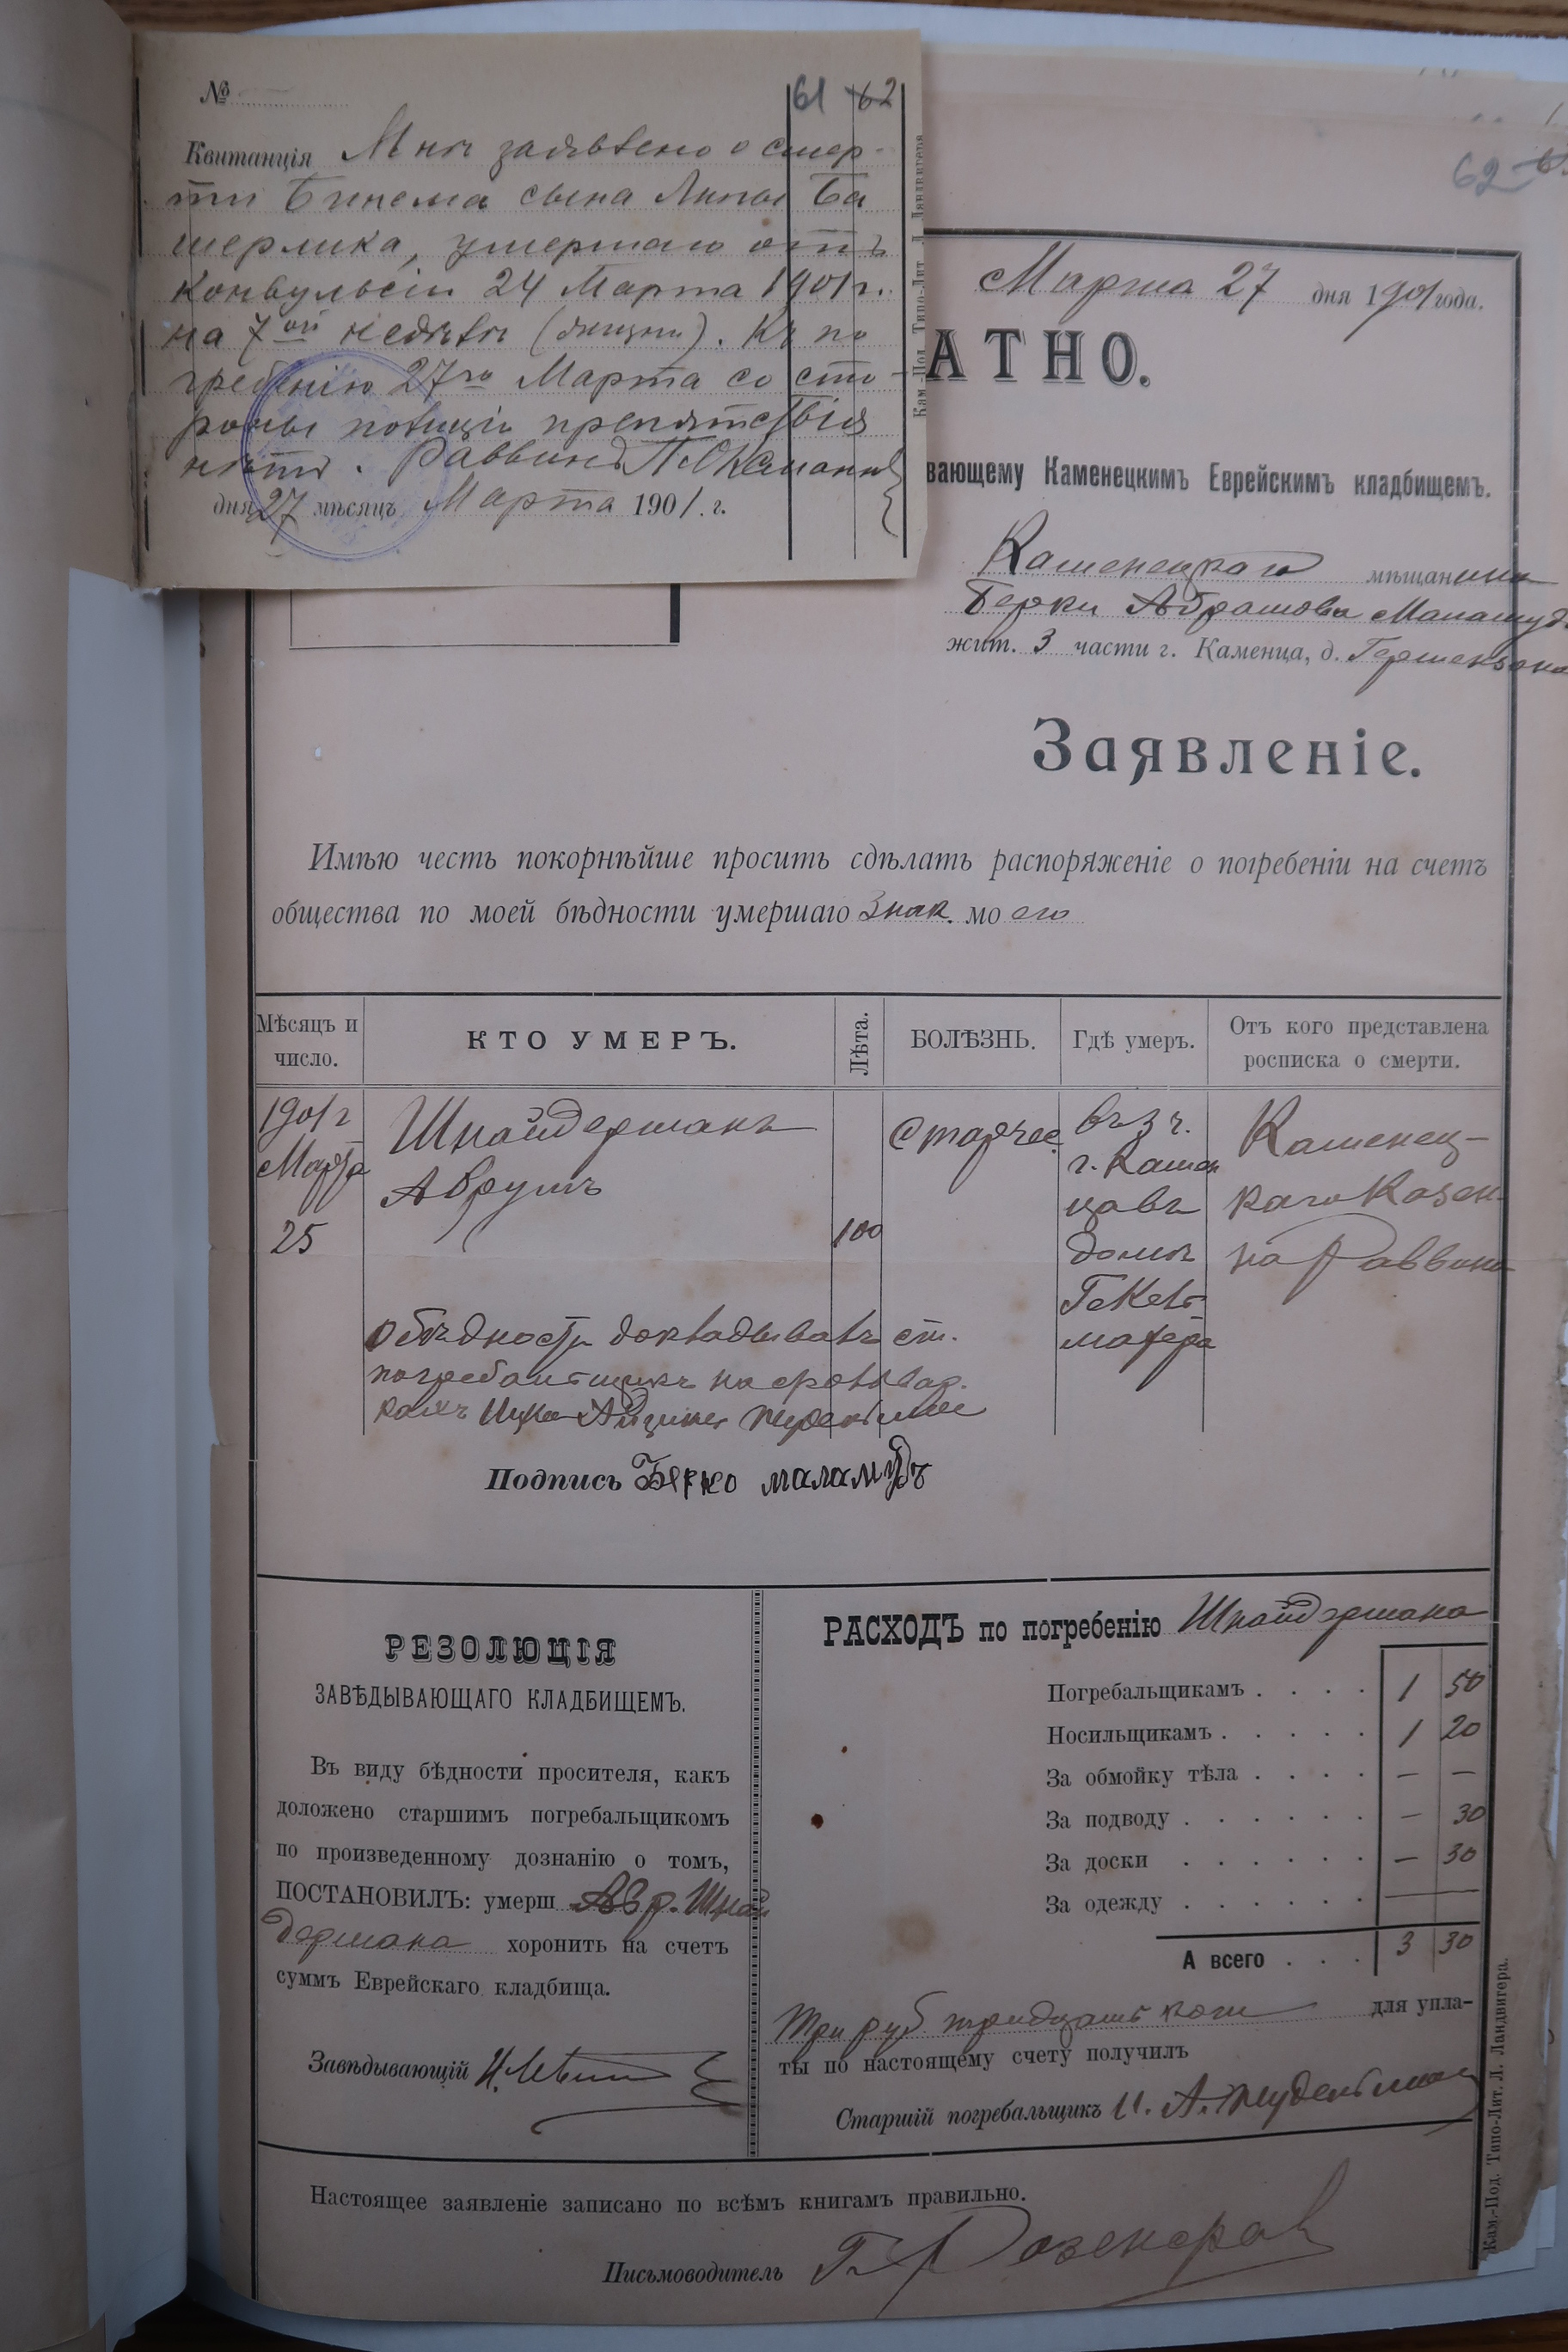 № 61 62
Квитанція Мнѣ заявлено о смер-
ти Бинема сына Липы Ба
шерлика, умершаго отъ
конвульсіи 24 Марта 1901 г.
на 7ой недѣлѣ (жизни). Къ по
гребенію 27го Марта со сто-
роны полиціи препятствія
нѣтъ. Раввинъ
дня 27 мѣсяцъ Марта 1901 г.
Кам.-Под. Типо-Лит. Л. Ландвигера
62
Марта 27 дня 1901 года.
АТНО.
вающему Каменецкимъ Еврейскимъ кладбищемъ.
Каменецкаго мѣщанина
Берки Абрамова Маламуд
жит. 3 части г. Каменца, д.
Заявленіе.
Имѣю честь покорнѣйше просить сдѣлать распоряженіе о погребеніи на счетъ
общества по моей бѣдности умершаго знак. моего
Мѣсяцъ и число. КТО УМЕРЪ. Лѣта. БОЛѢЗНЬ. Гдѣ умеръ. Отъ кого представлена росписка о смерти.
1901 г Шнайдерманъ Старчес. въ 3 ч. Каменец-
Марта Аврумъ г. Камен каго Казен-
25 100 цавъ на Раввина
домѣ
Гекель
махера
О бѣдности докладывалъ ст.
погребальщикъ
Ицко
Подпись Берко маламудъ
РЕЗОЛЮЦІЯ
ЗАВѢДЫВАЮЩАГО КЛАДБИЩЕМЪ.
Въ виду бѣдности просителя, какъ
доложено старшимъ погребальщикомъ
по произведенному дознанію о томъ,
ПОСТАНОВИЛЪ: умерш Авр. Шнай
дермана хоронить на счетъ
суммъ Еврейскаго кладбища.
Завѣдывающій
РАСХОДЪ по погребенію Шнайдермана
Погребальщикам ъ . . . . 1 50
Носильщикамъ . . . . . 1 20
За обмойку тѣла . . . . — —
За подводу . . . . . . — 30
За доски . . . . . . — 30
За одежду . . . . . . —
А всего . . . 3 30
Три руб тридцать коп для упла-
ты по настоящему счету получилъ
Старшій погребальщикъ И. А.
Настоящее заявленіе записано по всѣмъ книгамъ правильно.
Письмоводитель
Кам.-Под. Типо-Лит. Л. Ландвигера.